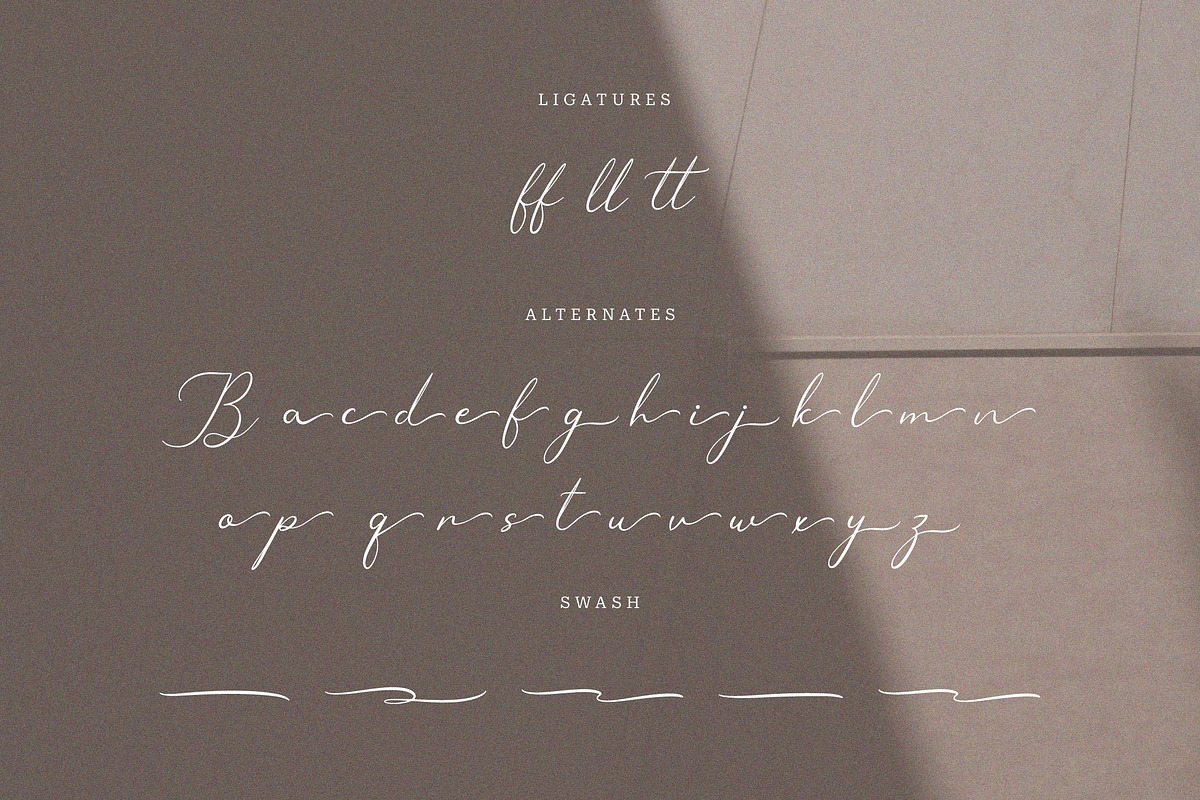 LIGATURES
ff ll tt
ALTERNATES
B a c d e f g h i j k l m n
o p q r s t u v w x y z
SWASH